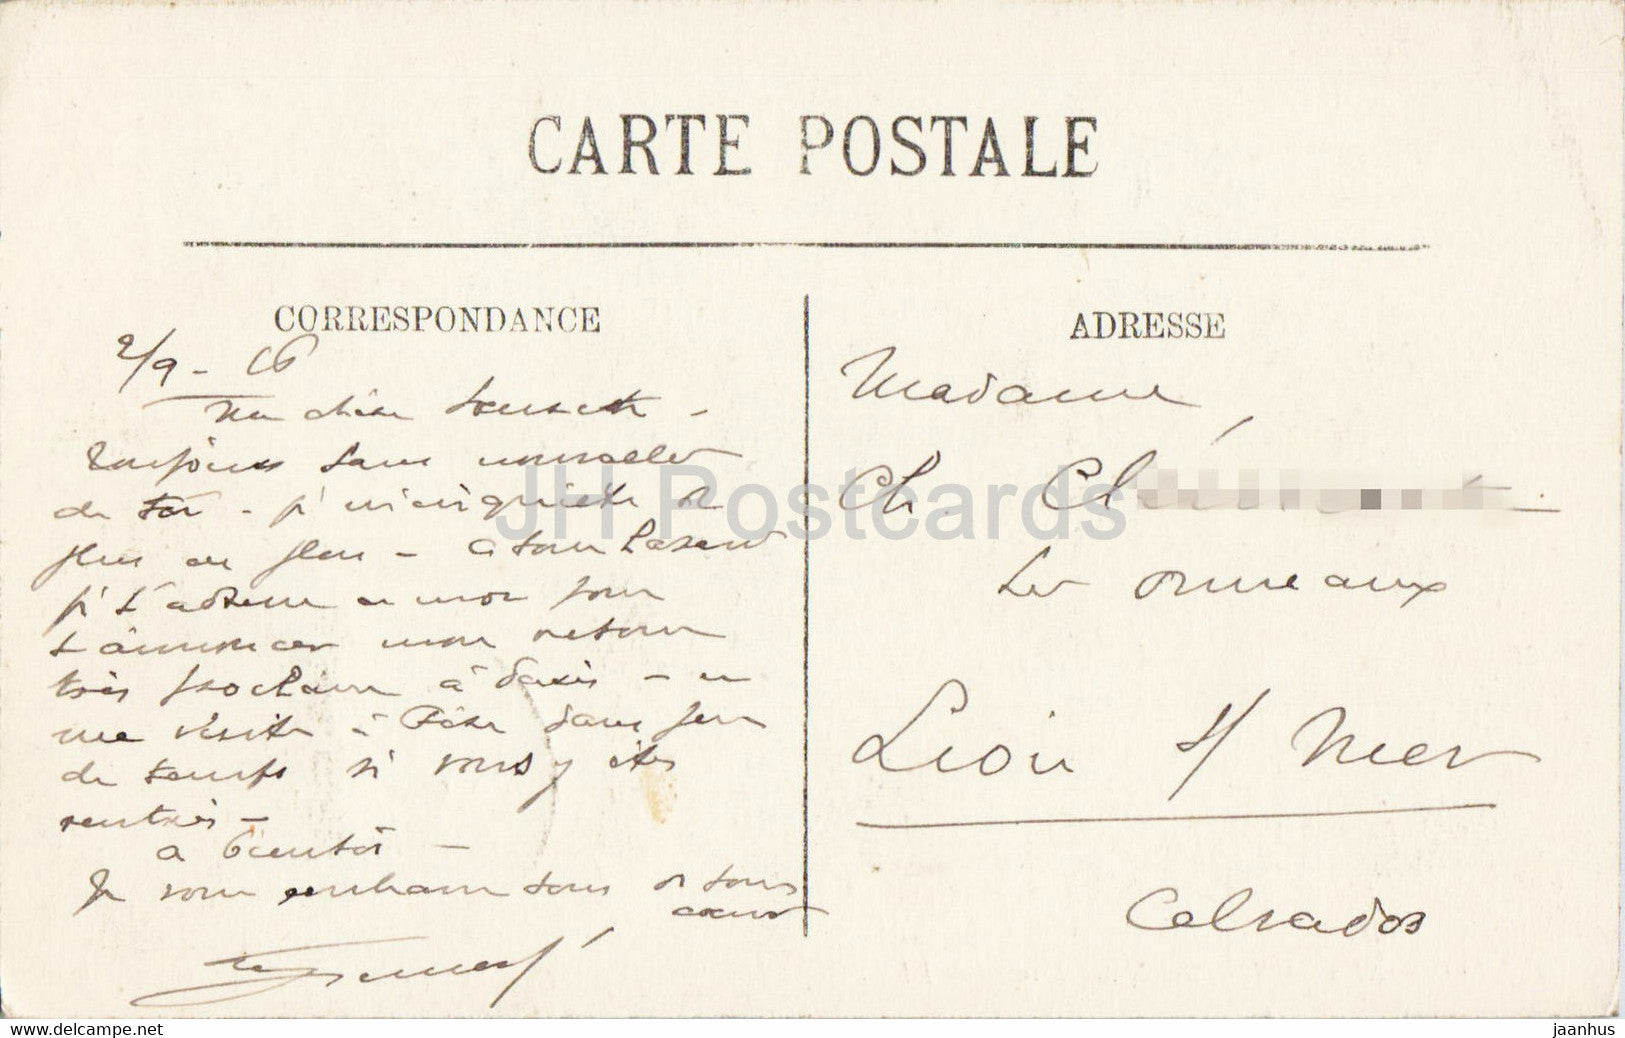 CARTE POSTALE
CORRESPONDANCE
2/9 - 16
Ma chère
Toujours sans nouvelles
de toi - j'm'inquiète de
plus en plus - à tout hasard
je t'adresse ce mot pour
t'annoncer mon retour
très prochain à Paris - et
une visite à dans peu
de temps si vous y êtes
rentrés -
à bientôt -
Je vous embrasse tous de tout
coeur
ADRESSE
Madame,
Ch. Cl
Les ormeaux
Lion s/ Mer
Calvados
JH Postcards
www.delcampe.net
jaanhus